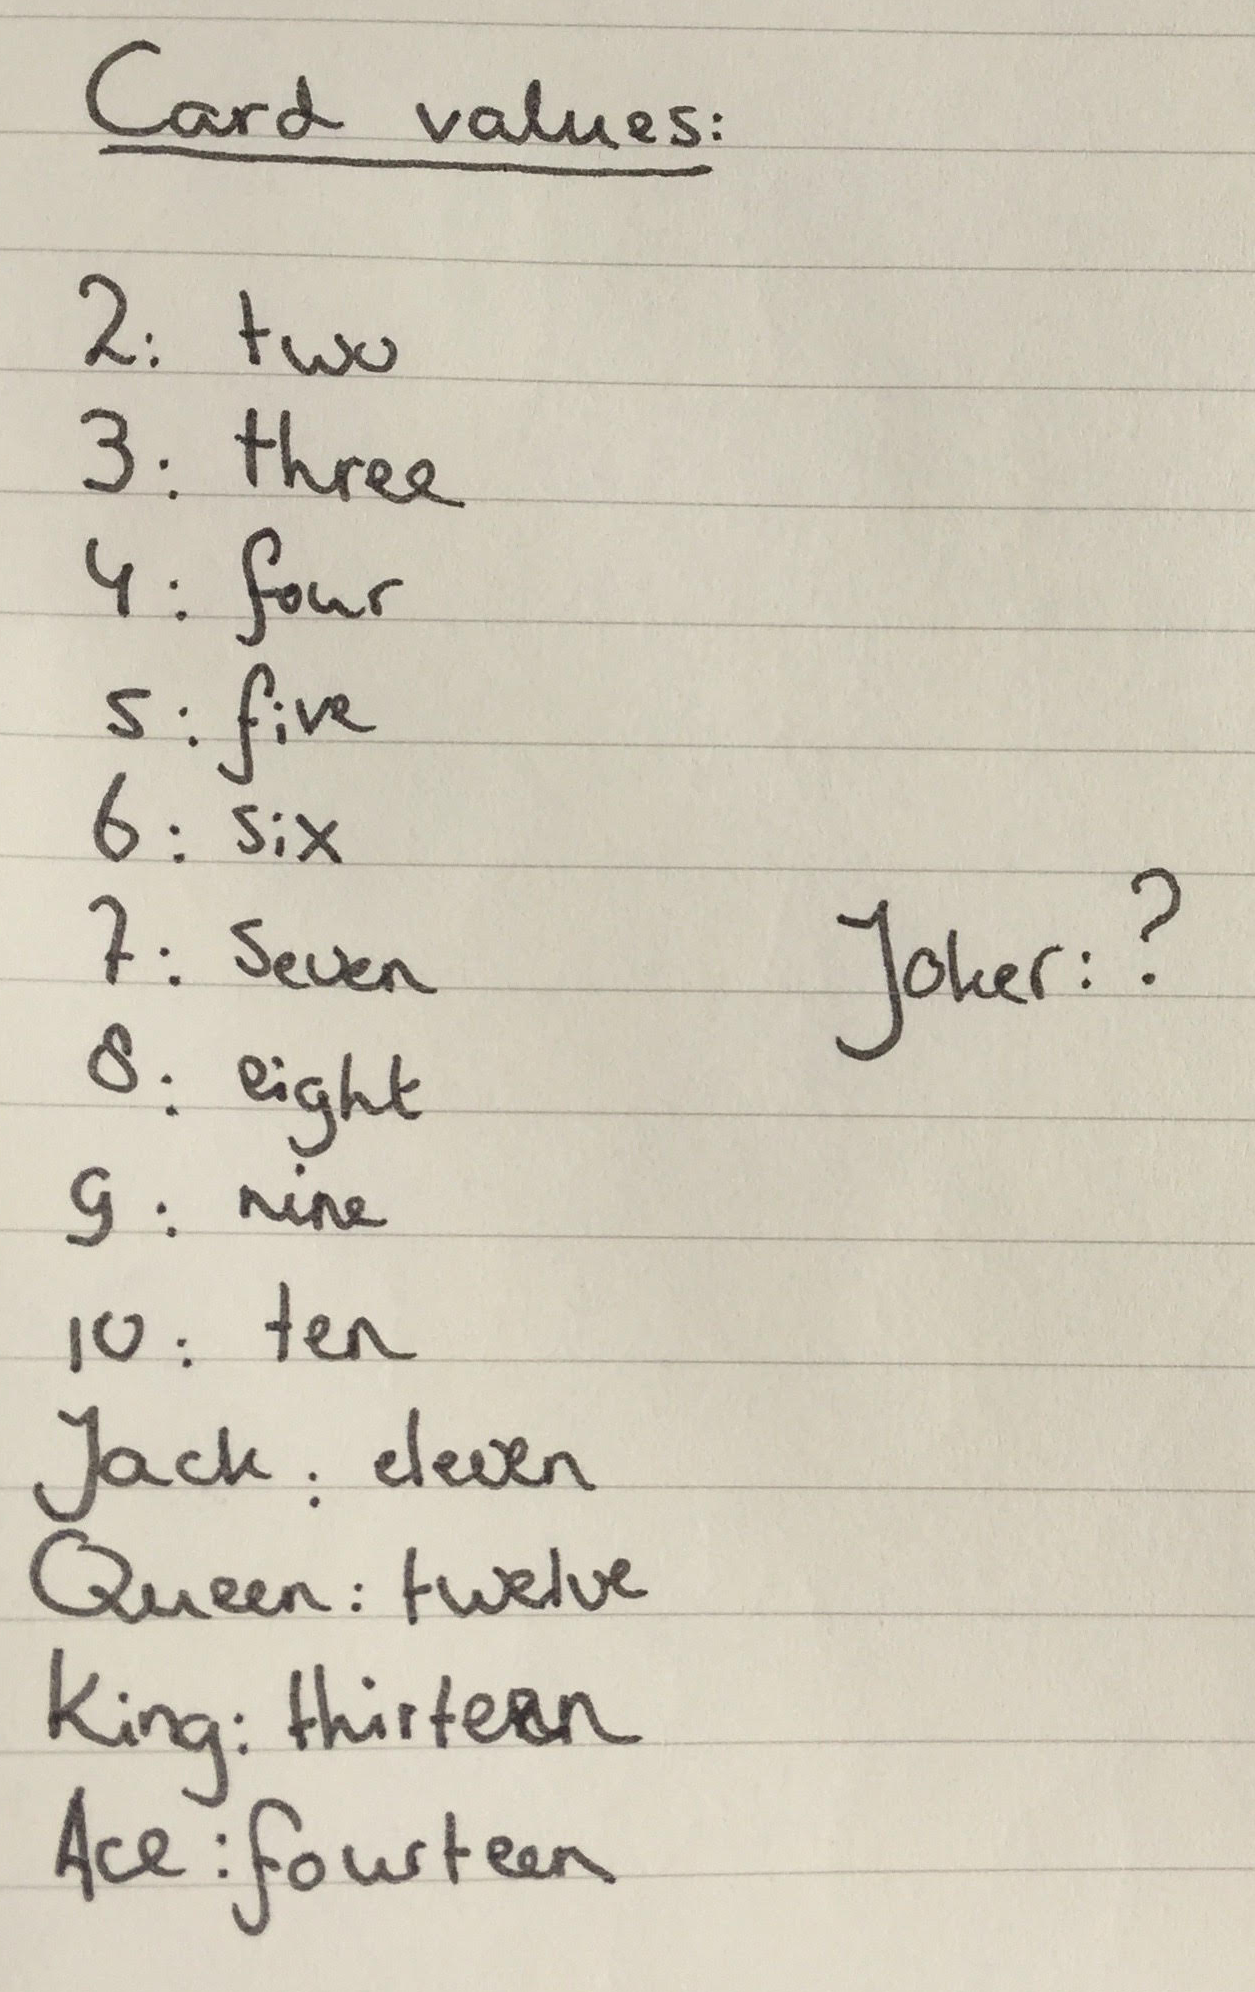 Card values:
2: two
3: three
4: four
5: five
6: six
7: seven
Joker: ?
8: eight
9: nine
10: ten
Jack: eleven
Queen: twelve
King: thirteen
Ace: fourteen